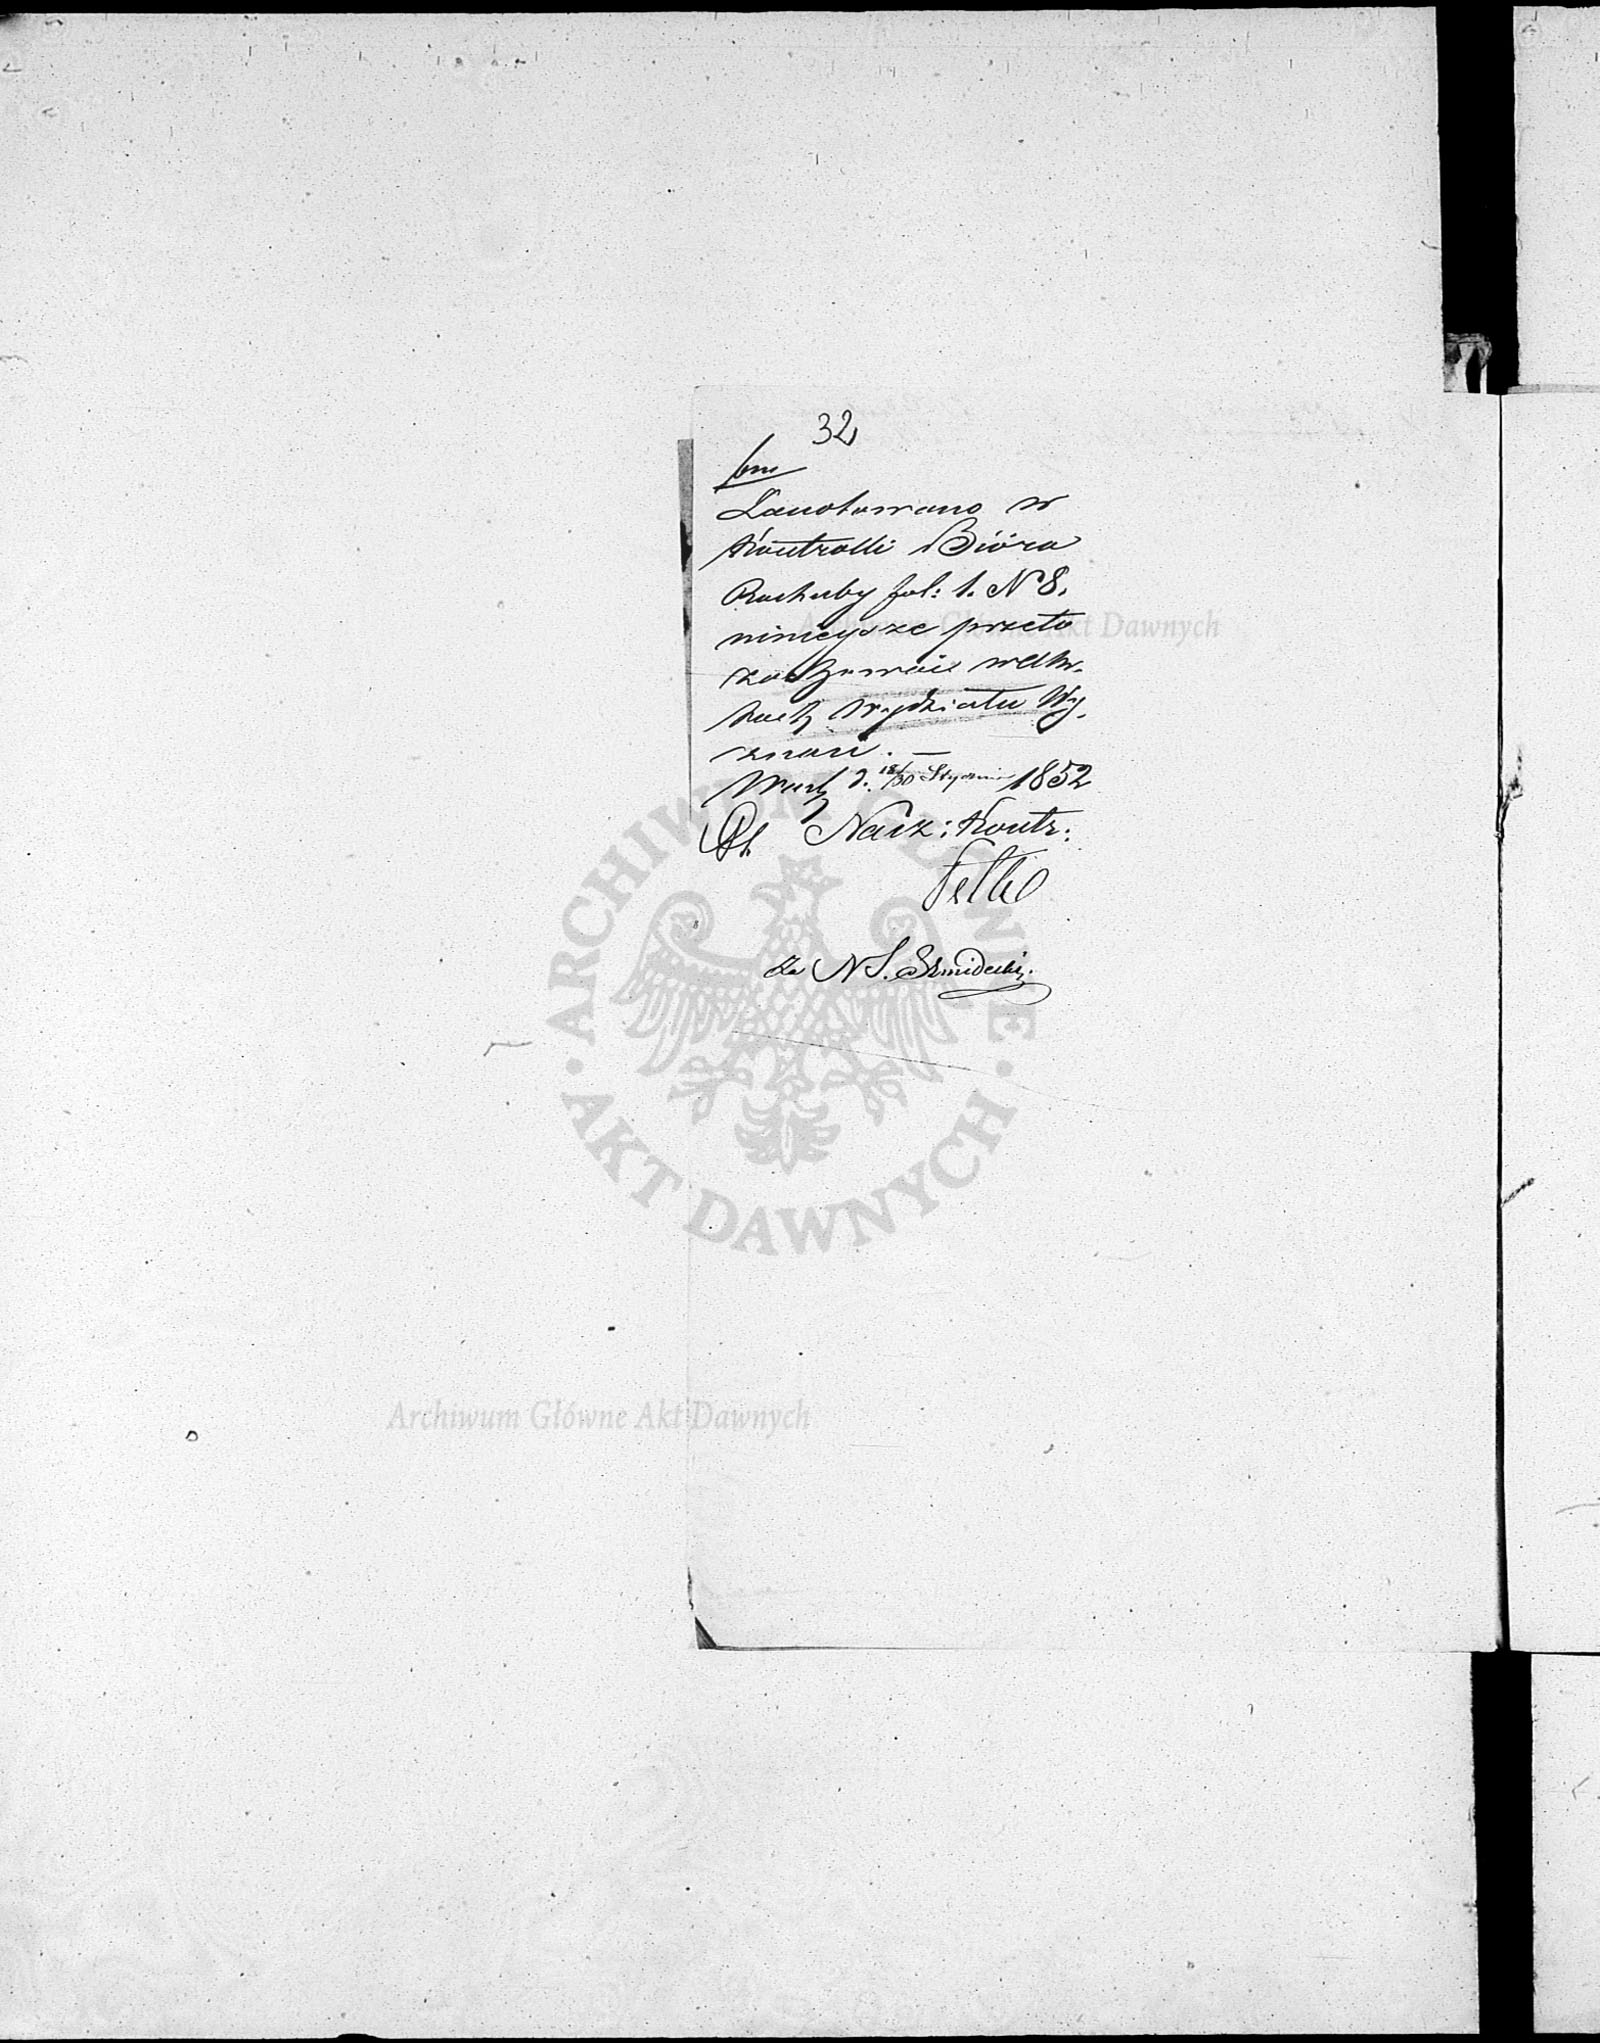 32
Zanotowano w
Kontrolli Bióra
Rachuby fol: 1. N 8.
nimeysze przeto
zachować w Akt.
tach Wydziału Wy,
znań. —
Warsz d. 18/30 Stycznia 1852
Nacz: Kontr:
za N S. Szmidecki.
ARCHIWUM GŁÓWNE
AKT DAWNYCH
Archiwum Główne Akt Dawnych
Archiwum Główne Akt Dawnych